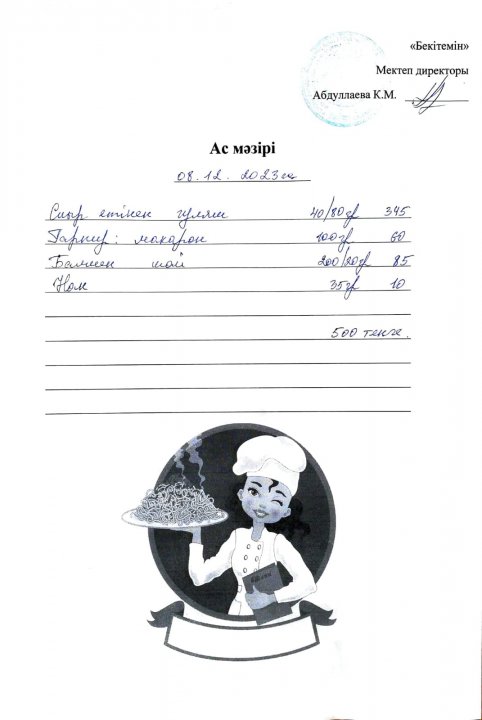 «Бекітемін»
Мектеп директоры
Абдуллаева К.М.
Ас мәзірі
08.12.2023ж
Сиыр етінен гуляш 40/80гр 345
Гарнир: макарон 100гр 60
Балмен шай 200/20гр 85
Нан 35гр 10
500 тенге.